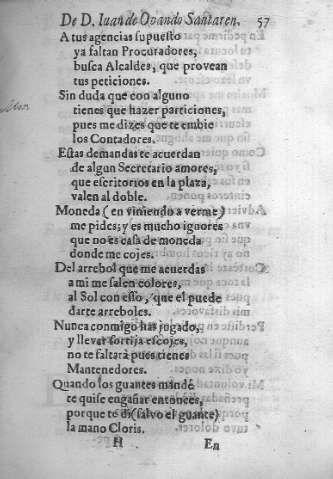 De D. Iuan de Ovando Santaren. 57
A tus agencias supuesto
ya faltan Procuradores,
busca Alcaldes, que provean
tus peticiones.
Sin duda que con alguno
tienes que hazer particiones,
pues me dizes que te embie
los Contadores.
Estas demandas te acuerdan
de algun Secretario amores,
que escritorios en la plaza,
valen al doble.
Moneda (en viniendo a verme)
me pides; y es mucho ignores
que no es casa de moneda
donde me cojes.
Del arrebol que me acuerdas
a mi me salen colores,
al Sol con esso, que el puede
darte arreboles.
Nunca conmigo has jugado,
y llevar sortija escojes,
no te faltarà pues tienes
Mantenedores.
Quando los guantes mandè
te quise engañar entonces,
porque te di (salvo el guante)
la mano Cloris.
H En